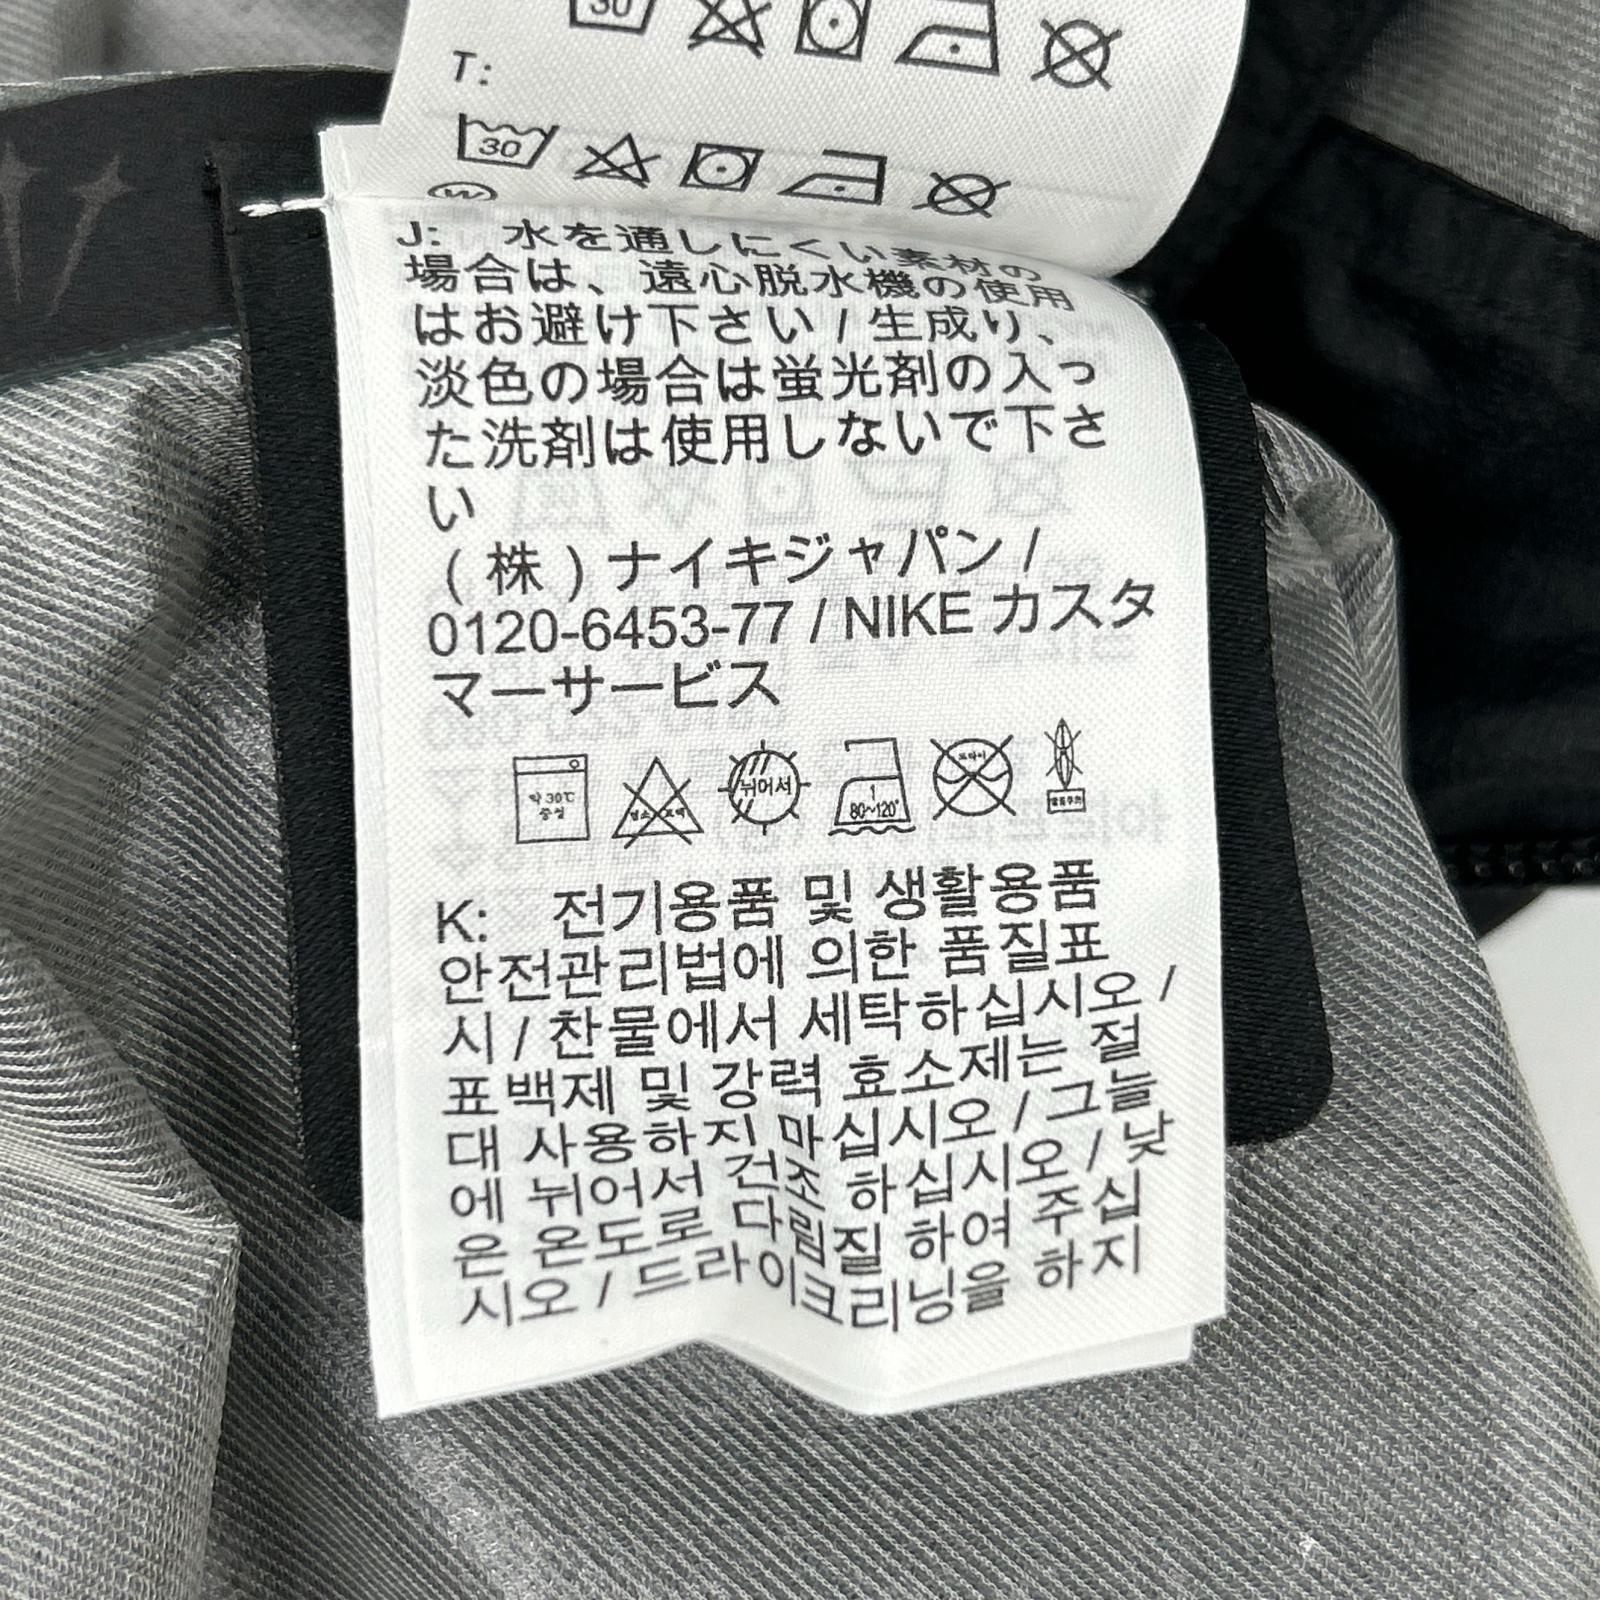 30
T:
30
W
J: 水を通しにくい素材の
場合は、遠心脱水機の使用
はお避け下さい / 生成り、
淡色の場合は蛍光剤の入っ
た洗剤は使用しないで下さ
い
( 株 ) ナイキジャパン /
0120-6453-77 / NIKE カスタ
マーサービス
약 30℃
중성
뉘어서
1
80~120°
K: 전기용품 및 생활용품
안전관리법에 의한 품질표
시 / 찬물에서 세탁하십시오 /
표백제 및 강력 효소제는 절
대 사용하지 마십시오 / 그늘
에 뉘어서 건조 하십시오 / 낮
은 온도로 다림질 하여 주십
시오 / 드라이크리닝을 하지